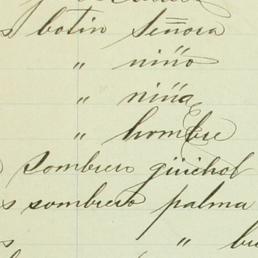 s botin Señora
" niño
" niña
" hombre
sombrero güichol
s sombrero palma
s "